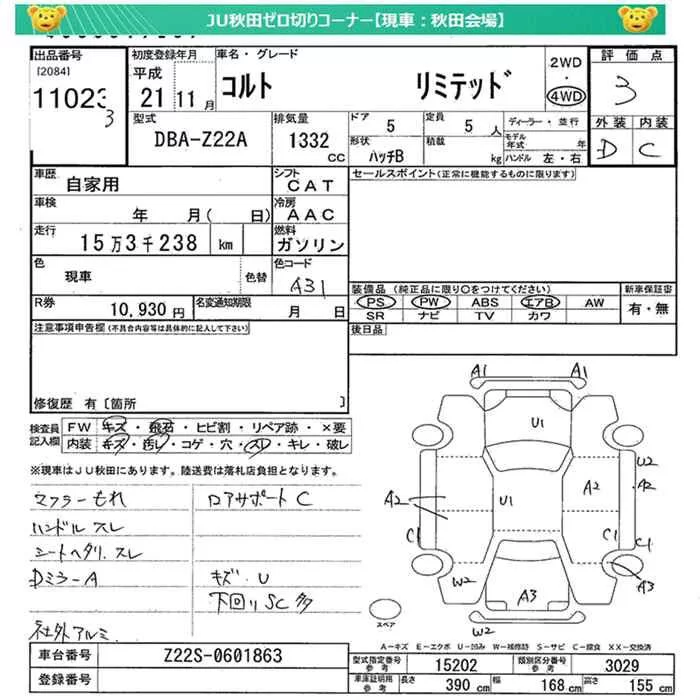 JU秋田ゼロ切りコーナー【現車：秋田会場】
出品番号
[2084]
11023
3
初度登録年月
平成
21年11月
車名・グレード
コルト リミテッド
2WD
・
4WD
評価点
3
外装 内装
D C
型式
DBA-Z22A
排気量
1332
CC
ドア 5
定員 5 人
形状 ハッチB
積載 kg
ディーラー・並行
モデル年式 年
ハンドル 左・右
車歴
自家用
シフト
CAT
セールスポイント(正常に機能するものに限ります)
車検
年 月( 日)
冷房
AAC
走行
15万3千238 km
燃料
ガソリン
色
現車
色替
色コード
A31
装備品(純正品に限り○をつけてください)
新車保証書
PS PW ABS エアB AW
SR ナビ TV カワ
有・無
R券
10,930円
名変通知期限
月 日
後日品
注意事項申告欄(不具合内容等は具体的に記入して下さい)
修復歴 有[箇所 ]
検査員記入欄
FW キズ・飛石・ヒビ割・リペア跡・×要
内装 キズ・汚レ・コゲ・穴・スレ・キレ・破レ
※現車はJU秋田にあります。陸送費は落札店負担となります。
マフラーもれ
ロアサポートC
ハンドルスレ
シートヘタリ.スレ
Dミラー A
キズ・U
下回りSC多
社外アルミ
A1 A1
U1
W2
A2
A2
A2
U1
C1
C1
C1
W2
A3
A3
W2
スペア
A-キズ E-エクボ U-凹み W-補修跡 S-サビ C-腐食 XX-交換済
車台番号
Z22S-0601863
登録番号
型式指定番号
参考
15202
類別区分番号
参考
3029
車庫証明用
参考
長さ 390 cm
幅 168 cm
高さ 155 cm